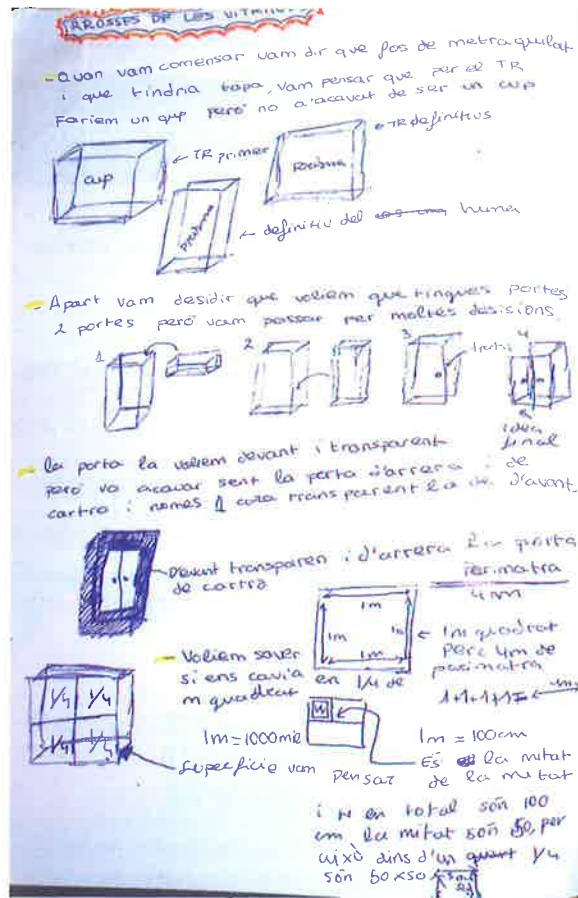 TARROSSES DE LES VITRINES
- Quan vam comensar vam dir que fos de metraquilat
i que tindria tapa, vam pensar que per el TR
Fariem un cup però no a'acavat de ser un cup
cup
← TR primer
Prisma
← TR definitius
Prisma
← definitiu del humer
- Apart vam desidir que voliem que tingues portes
2 portes però vam passar per moltes desisions
1
2
3
4
idea
final
- la porta la voliem devant i transparent
però va acavar sent la porta d'arrera i de
cartro i nomes 1 cara transparent la de d'avant
Devant transparen i d'arrera porta
de cartra
perimatra
4m
1m
1m
1m
1m
← 1m quadrat
Però 4m de
parimatra
1+1+1+1=
- Voliem saver
si ens cavia en 1/4 de
m quadrat
1/4 1/4
1/4 1/4
1m = 1000mil
Superficie vam pensar
1m = 100cm
És la mitat
de la mitat
i en total són 100
cm la mitat són 50, per
aixó dins d'un 1/4
són 50x50